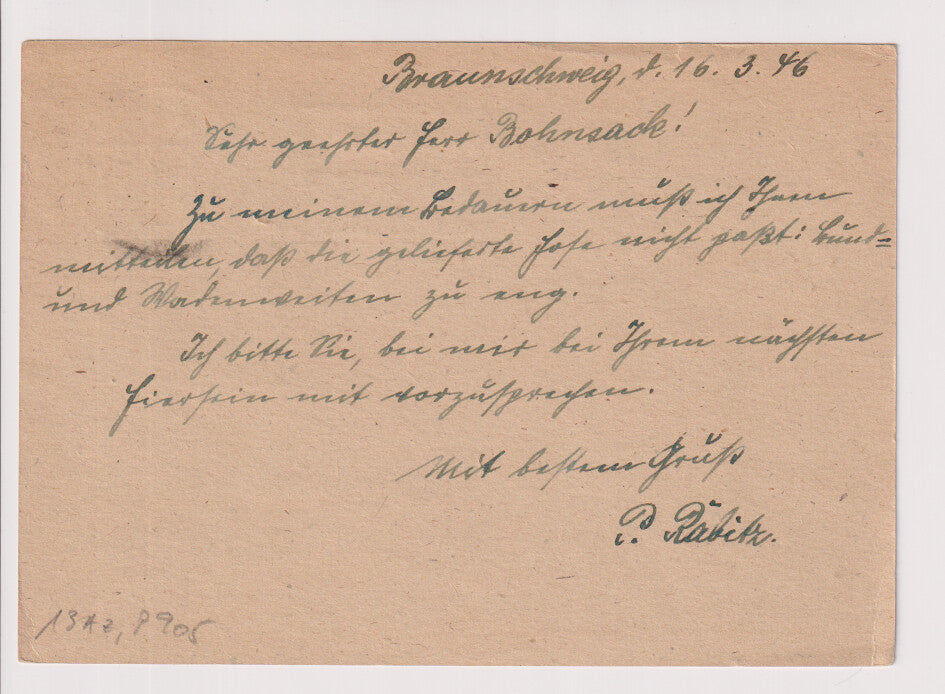 Braunschweig, d. 16. 3. 46
Sehr geehrter Herr Bohnsack!
Zu meinem Bedauern muß ich Ihnen
mitteilen, daß die gelieferte Hose nicht paßt: Bund=
und Wadenweiten zu eng.
Ich bitte Sie, bei mir bei Ihrem nächsten
Hiersein mit vorzusprechen.
Mit bestem Gruß
P. Räbitz.
13 Az, P 905